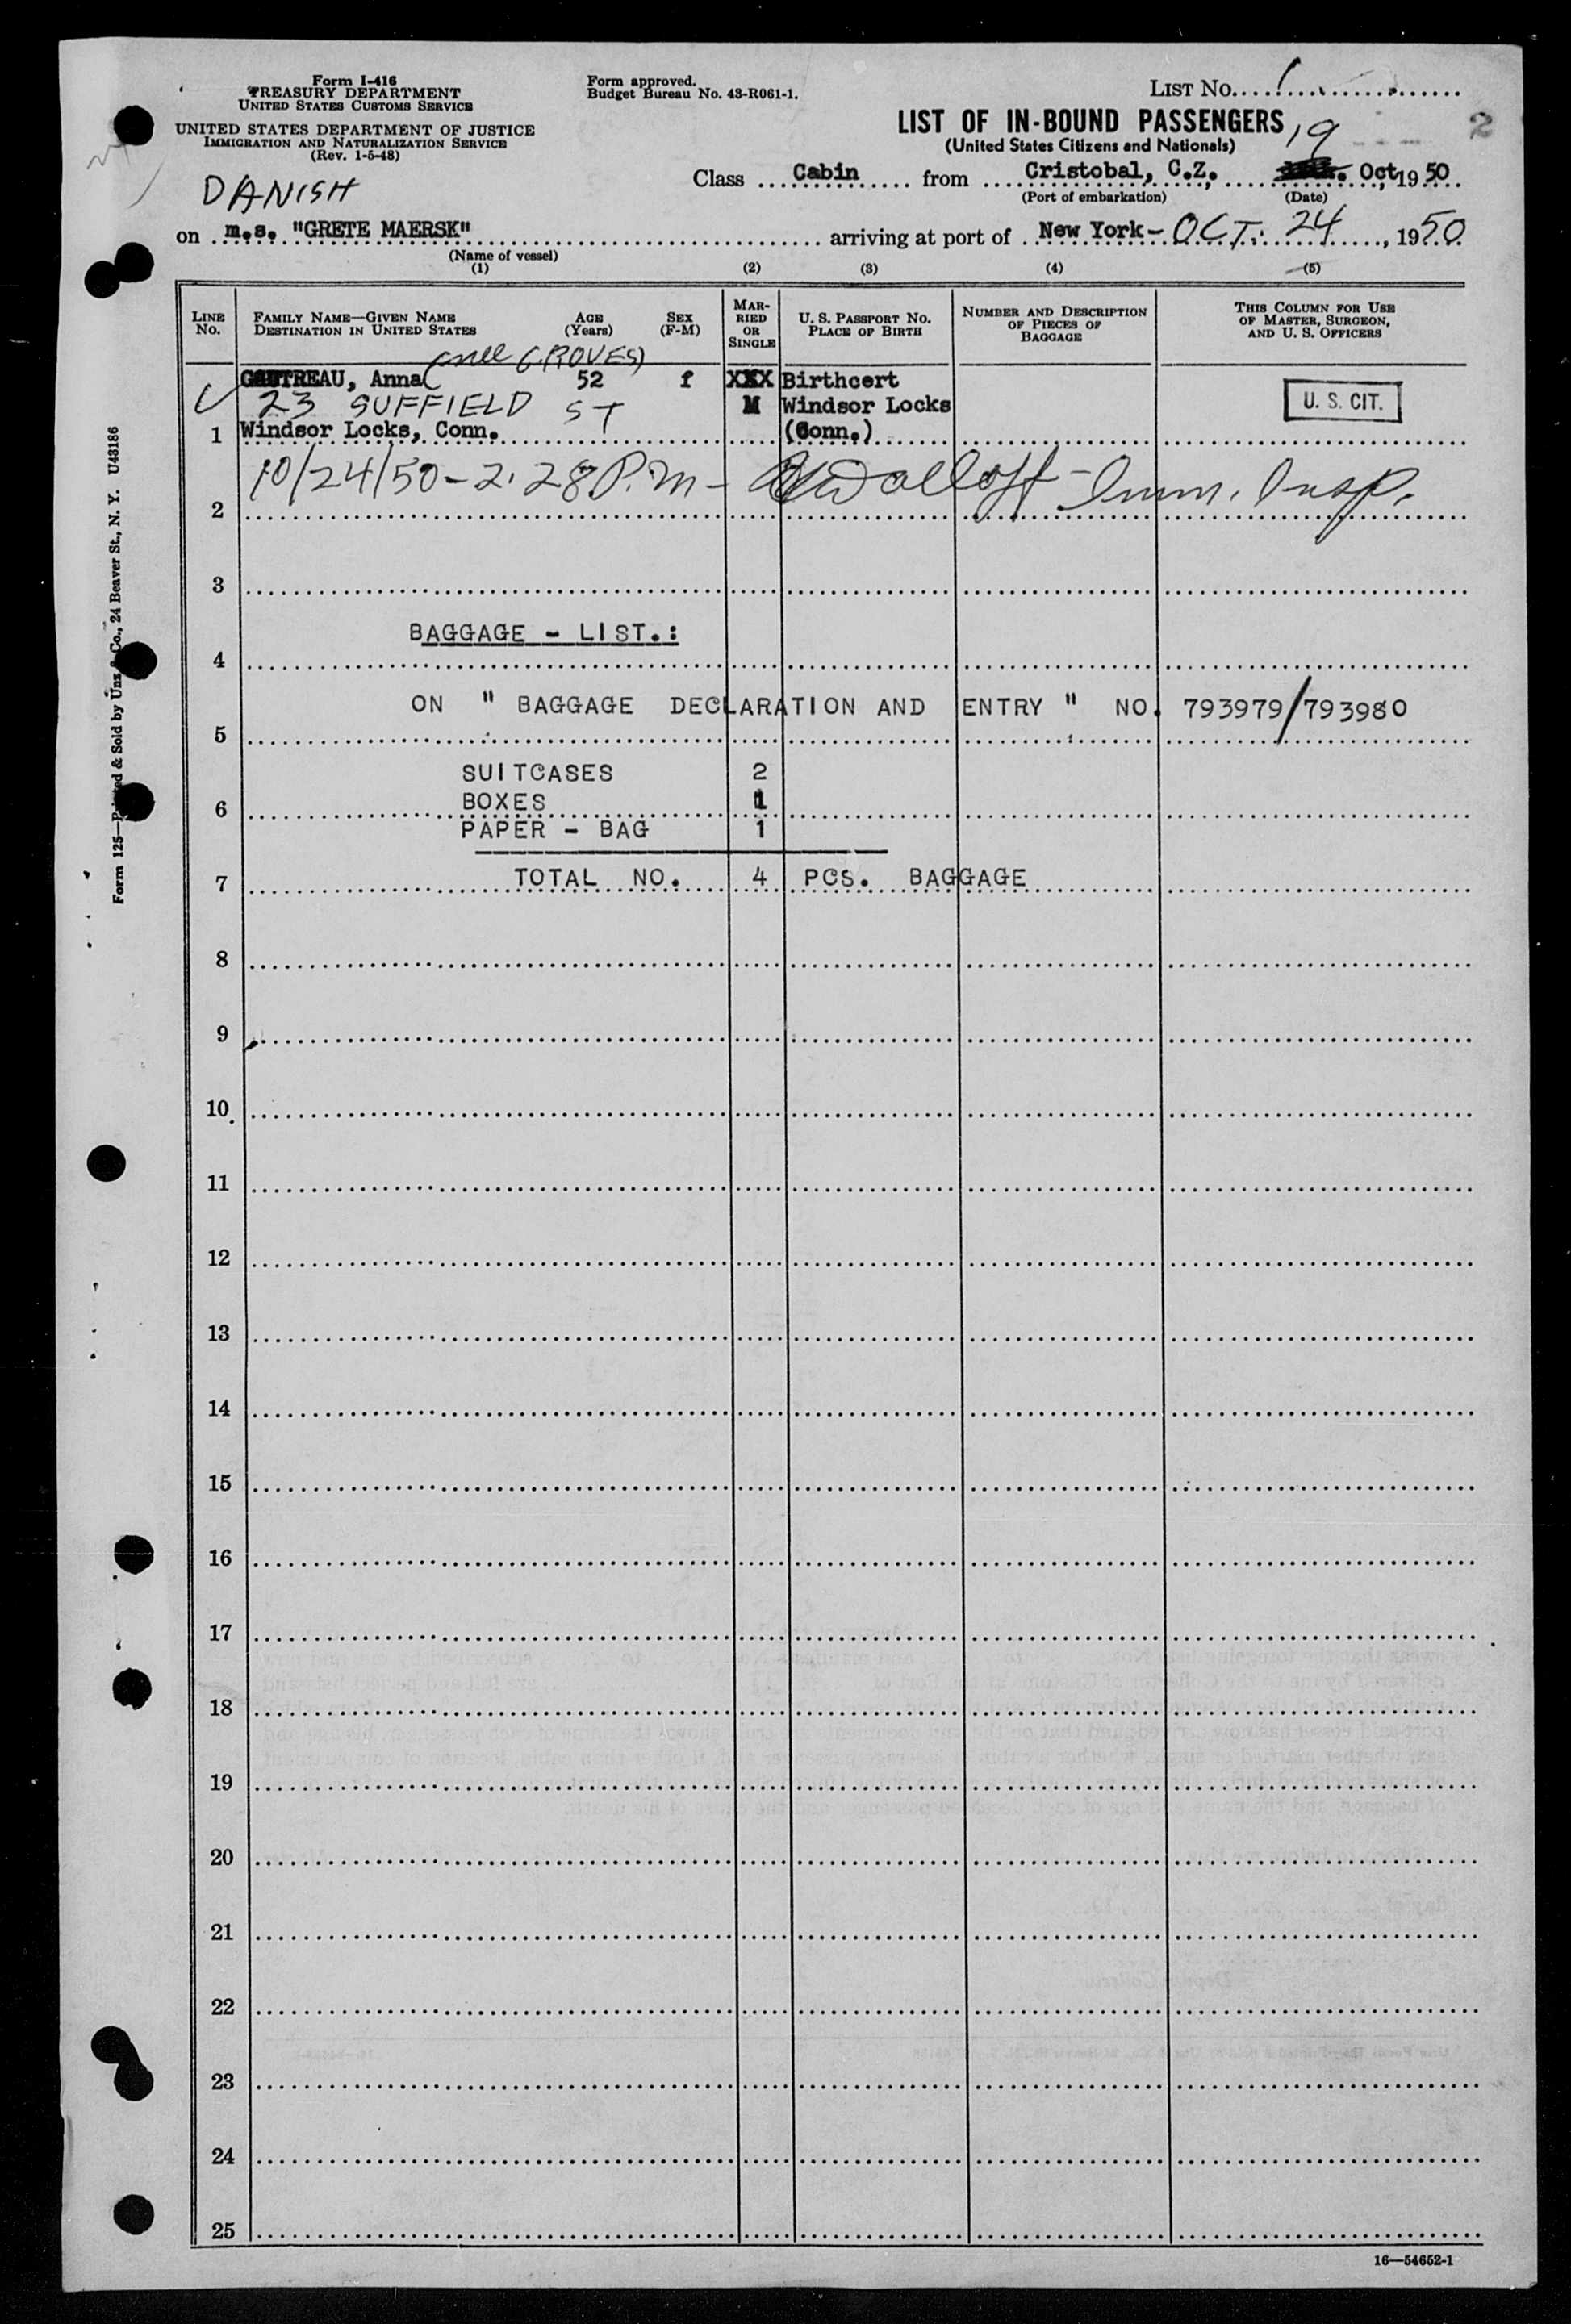 Form I-416
TREASURY DEPARTMENT
UNITED STATES CUSTOMS SERVICE
UNITED STATES DEPARTMENT OF JUSTICE
IMMIGRATION AND NATURALIZATION SERVICE
(Rev. 1-5-48)
Form approved.
Budget Bureau No. 43-R061-1.
LIST NO. 1
2
LIST OF IN-BOUND PASSENGERS
(United States Citizens and Nationals)
19
DANISH
Class Cabin from Cristobal, C.Z., Oct, 1950
(Port of embarkation) (Date)
on m.s. "GRETE MAERSK" arriving at port of New York - OCT. 24, 1950
(Name of vessel)
(1) (2) (3) (4) (5)
LINE No.
FAMILY NAME—GIVEN NAME
DESTINATION IN UNITED STATES
AGE (Years)
SEX (F-M)
MARRIED OR SINGLE
U. S. PASSPORT NO.
PLACE OF BIRTH
NUMBER AND DESCRIPTION OF PIECES OF BAGGAGE
THIS COLUMN FOR USE OF MASTER, SURGEON, AND U. S. OFFICERS
(nee GROVES)
GAUTREAU, Anna 52 f XXX Birthcert
23 SUFFIELD ST M Windsor Locks
U. S. CIT.
1 Windsor Locks, Conn. (Conn.)
10/24/50 - 2.28 P.M - Imm. Insp.
2
3
BAGGAGE - LIST.:
4
ON " BAGGAGE DECLARATION AND ENTRY " NO. 793979/793980
5
SUITCASES 2
BOXES 1
6
PAPER - BAG 1
7 TOTAL NO. 4 PCS. BAGGAGE
8
9
10
11
12
13
14
15
16
17
18
19
20
21
22
23
24
25
16—54652-1
Form 125—Printed & Sold by Unz & Co., 24 Beaver St., N. Y. U43186